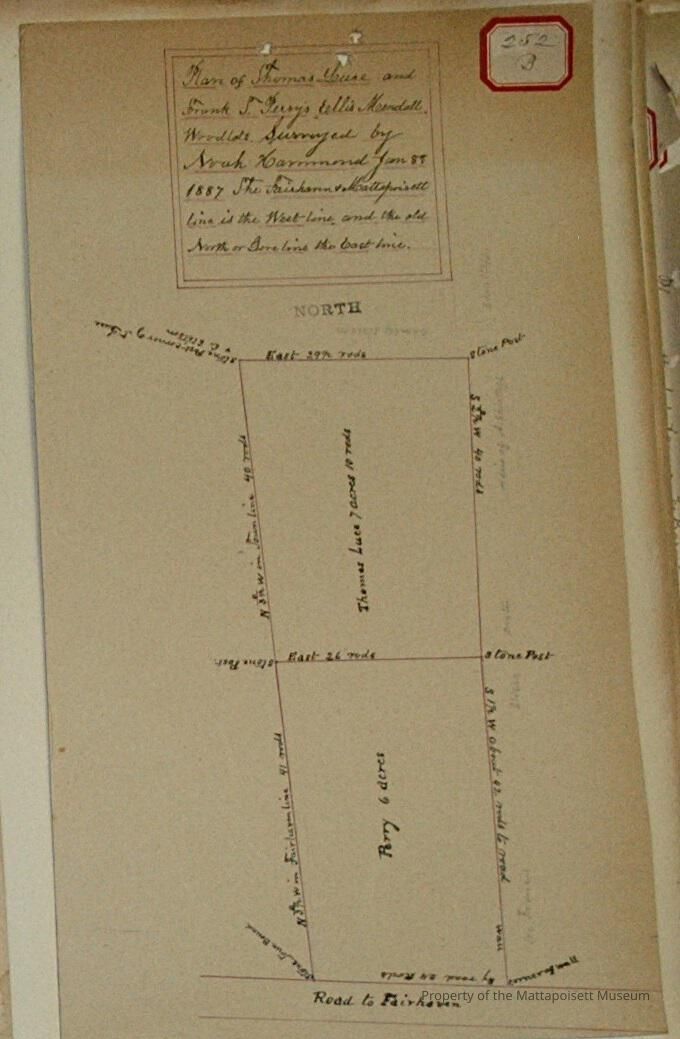 252
B
Plan of Thomas Luce and
Frank T. Perrys Ellis Mendall
Woodlots. Surveyed by
Noah Hammond Jan 8th
1887 The Fairhaven & Mattapoisett
line is the West line and the old
North or Gore line the East line.
NORTH
Stone Post corner of
East 29½ rods
Stone Post
W 40 rods
N W in Town line 40 rods
Thomas Luce 7 acres 10 rods
Stone Post
East 26 rods
Stone Post
S 1½ W about 42 rods to road
N W in Fairhaven line 41 rods
Perry 6 acres
wall
Stone
by road 24 Rods
Road to Fairhaven
Property of the Mattapoisett Museum